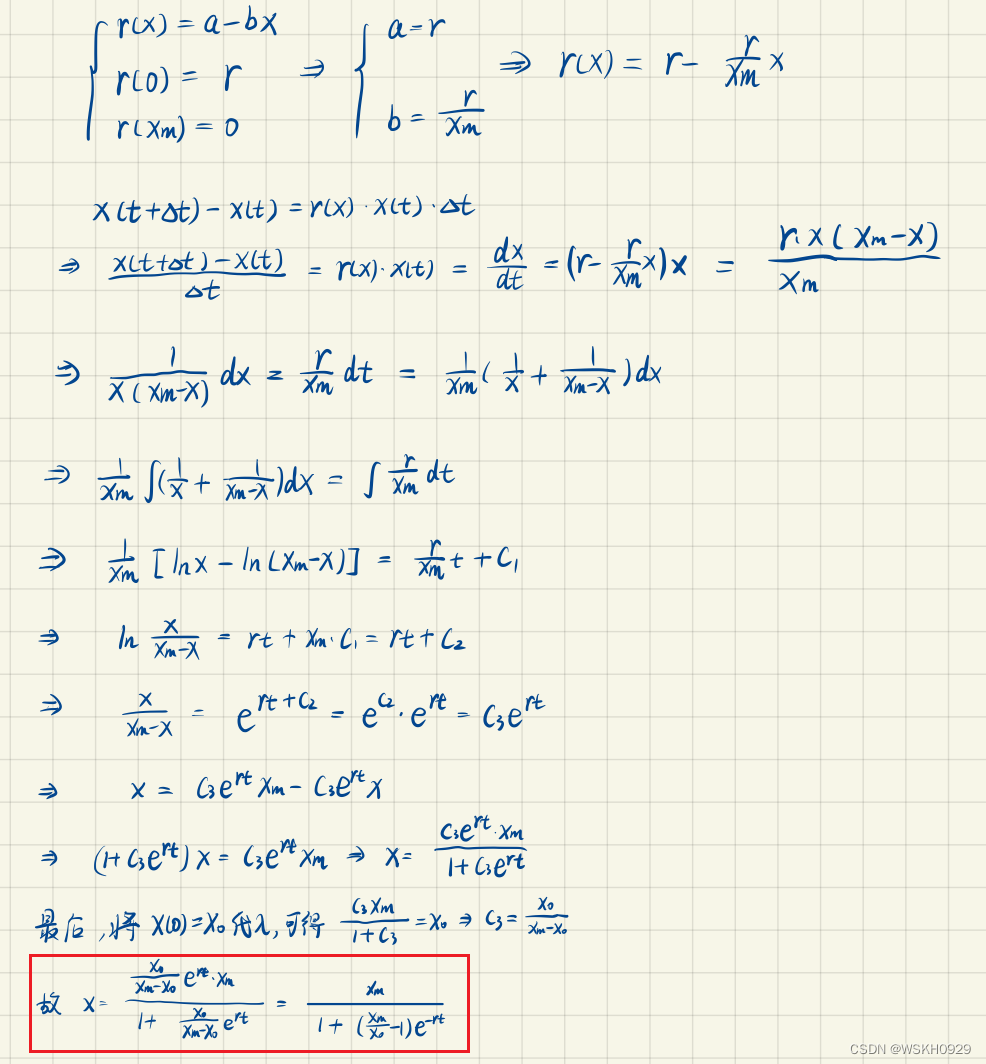 { r(x) = a - bx ⇒ { a = r ⇒ r(x) = r - \frac{r}{x_m} x
r(0) = r
r(x_m) = 0 b = \frac{r}{x_m}
x(t+Δt) - x(t) = r(x) · x(t) · Δt
⇒ \frac{x(t+Δt) - x(t)}{Δt} = r(x) · x(t) = \frac{dx}{dt} = (r - \frac{r}{x_m} x) x = \frac{r · x (x_m - x)}{x_m}
⇒ \frac{1}{x (x_m - x)} dx = \frac{r}{x_m} dt = \frac{1}{x_m} ( \frac{1}{x} + \frac{1}{x_m - x} ) dx
⇒ \frac{1}{x_m} ∫ ( \frac{1}{x} + \frac{1}{x_m - x} ) dx = ∫ \frac{r}{x_m} dt
⇒ \frac{1}{x_m} [ ln x - ln (x_m - x) ] = \frac{r}{x_m} t + C_1
⇒ ln \frac{x}{x_m - x} = rt + x_m · C_1 = rt + C_2
⇒ \frac{x}{x_m - x} = e^{rt + C_2} = e^{C_2} · e^{rt} = C_3 e^{rt}
⇒ x = C_3 e^{rt} x_m - C_3 e^{rt} x
⇒ (1 + C_3 e^{rt}) x = C_3 e^{rt} x_m ⇒ x = \frac{C_3 e^{rt} · x_m}{1 + C_3 e^{rt}}
最后,将 x(0) = x_0 代入,可得 \frac{C_3 x_m}{1 + C_3} = x_0 ⇒ C_3 = \frac{x_0}{x_m - x_0}
故 x = \frac{\frac{x_0}{x_m - x_0} e^{rt} · x_m}{1 + \frac{x_0}{x_m - x_0} e^{rt}} = \frac{x_m}{1 + (\frac{x_m}{x_0} - 1) e^{-rt}}
CSDN @WSKH0929